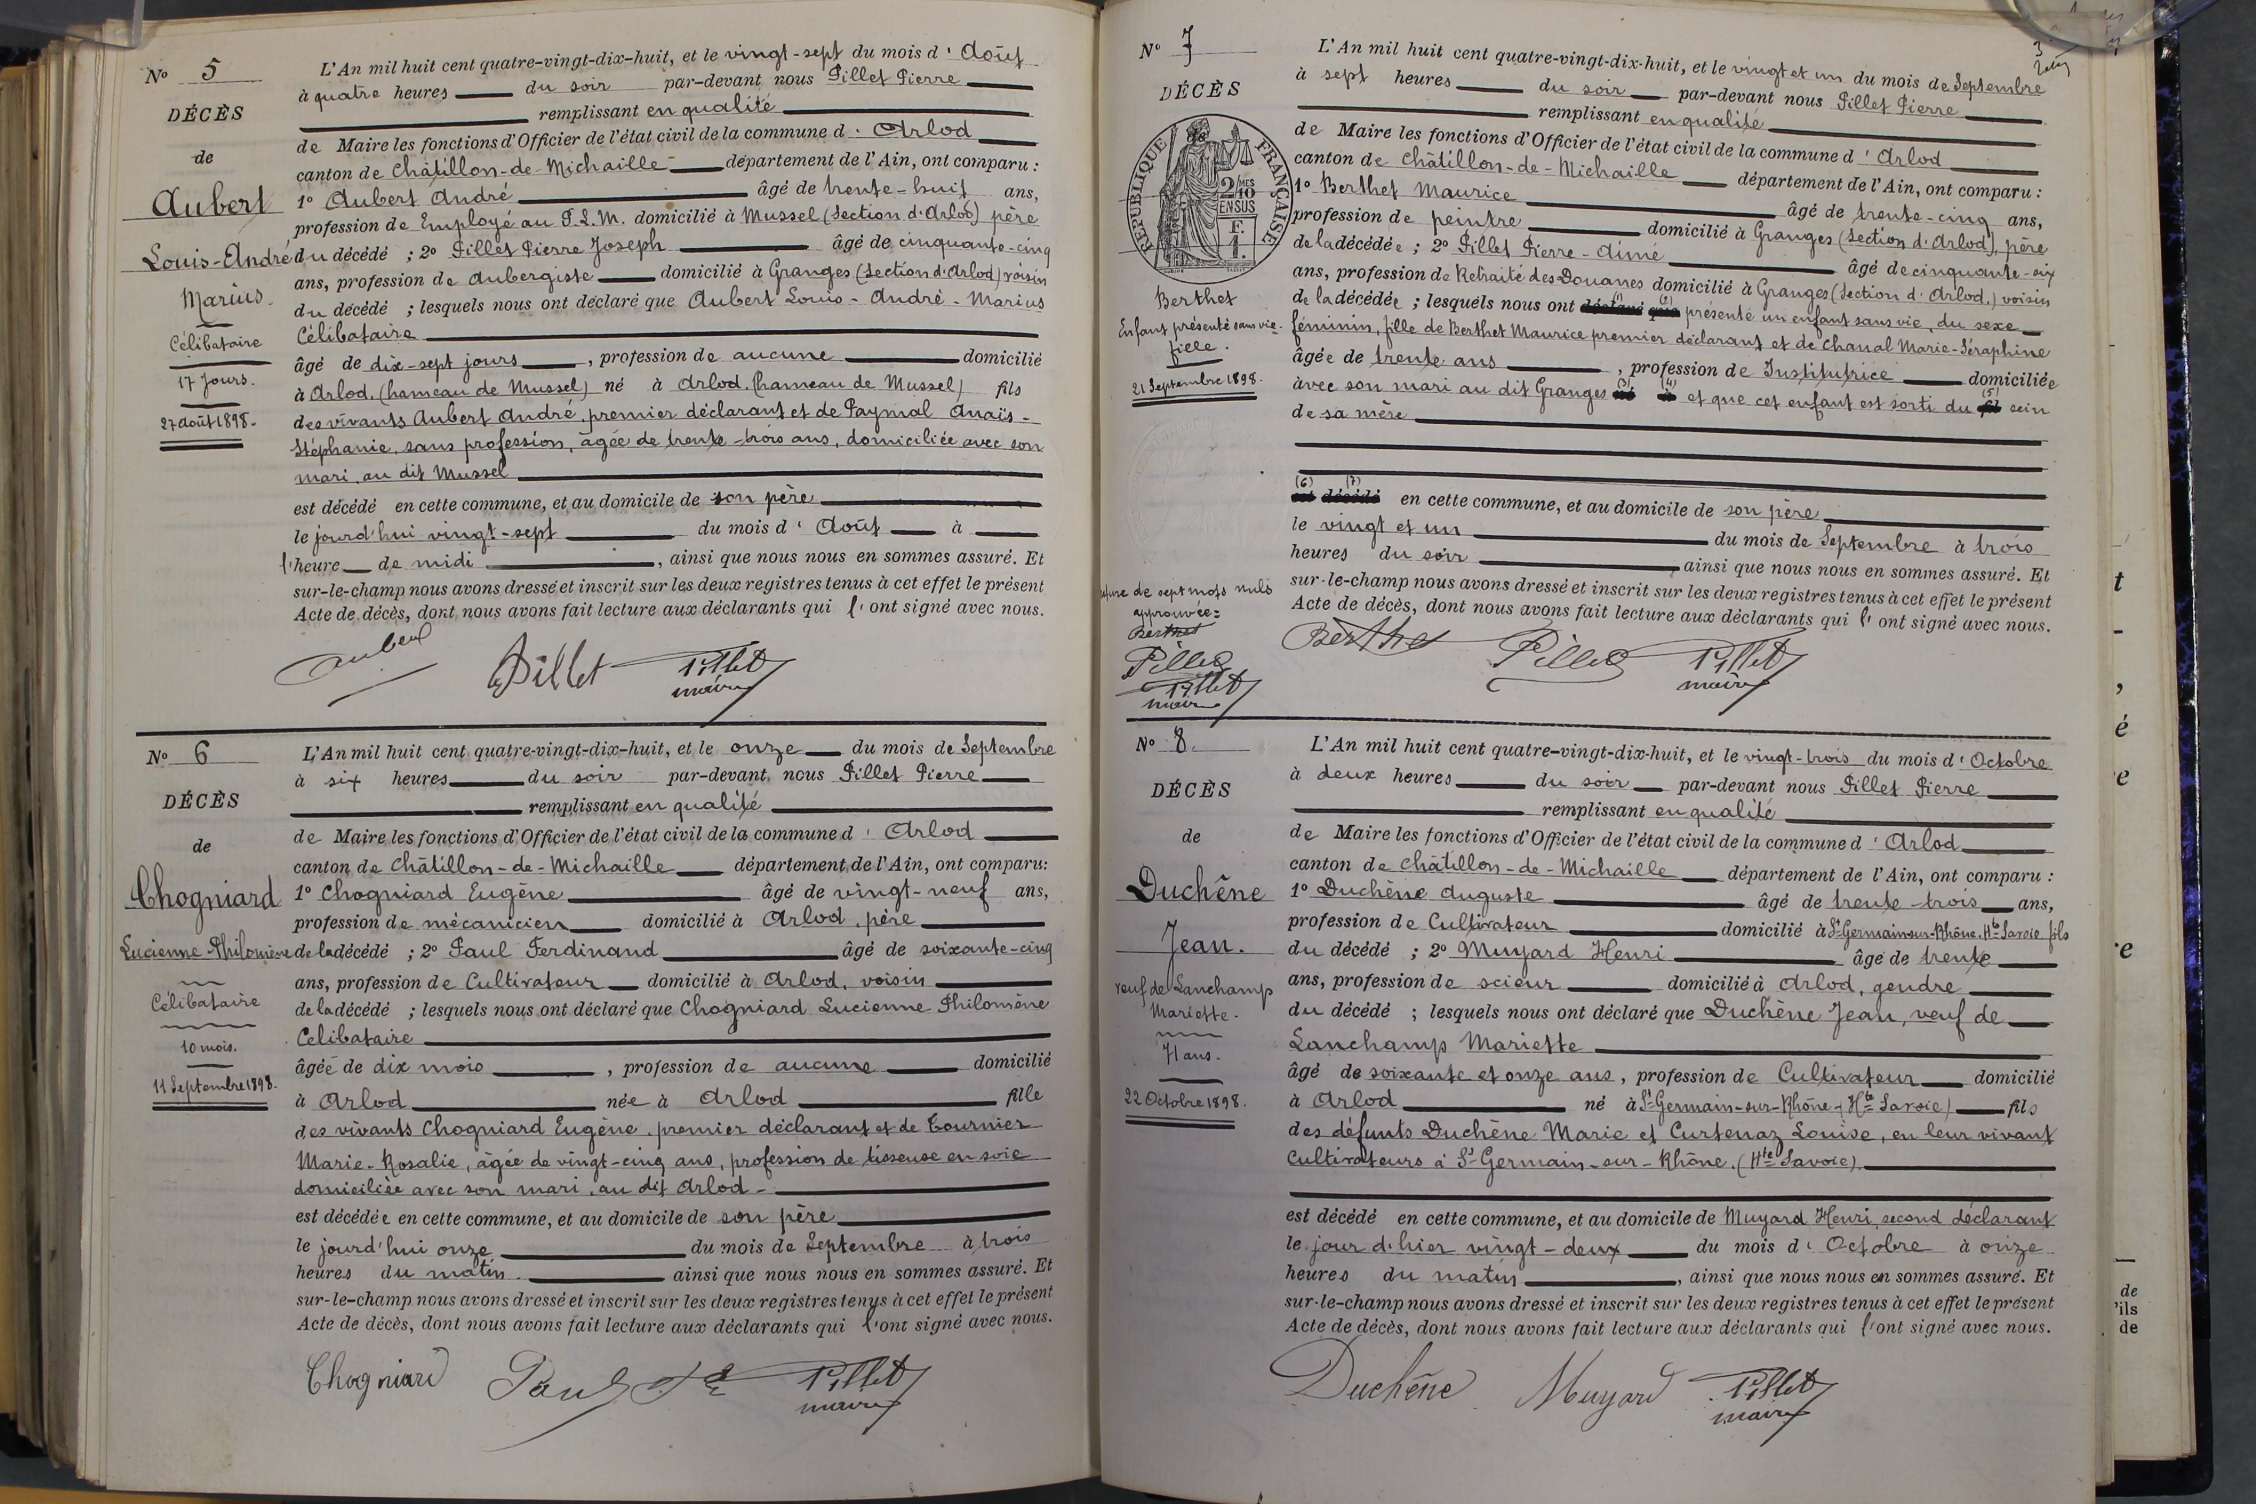 N° 5
DÉCÈS
de
Aubert
Louis-André
Marius.
Célibataire
17 Jours.
27 août 1898.
L'An mil huit cent quatre-vingt-dix-huit, et le vingt-sept du mois d' Août
à quatre heures du soir par-devant nous Pillet Pierre
remplissant en qualité
de Maire les fonctions d'Officier de l'état civil de la commune d' Arlod
canton de Châtillon-de-Michaille département de l'Ain, ont comparu :
1° Aubert André âgé de trente-huit ans,
profession de Employé au P.L.M. domicilié à Mussel (Section d'Arlod) père
du décédé ; 2° Pillet Pierre Joseph âgé de cinquante-cinq
ans, profession de aubergiste domicilié à Granges (Section d'Arlod) voisin
du décédé ; lesquels nous ont déclaré que Aubert Louis-André-Marius
Célibataire
âgé de dix-sept jours, profession de aucune domicilié
à Arlod, (hameau de Mussel) né à Arlod. (hameau de Mussel) fils
des vivants Aubert André, premier déclarant et de Paymal Anaïs-
Stéphanie, sans profession, âgée de trente-trois ans, domiciliée avec son
mari, au dit Mussel
est décédé en cette commune, et au domicile de son père
le jourd'hui vingt-sept du mois d' Août à
l'heure de midi, ainsi que nous nous en sommes assuré. Et
sur-le-champ nous avons dressé et inscrit sur les deux registres tenus à cet effet le présent
Acte de décès, dont nous avons fait lecture aux déclarants qui l'ont signé avec nous.
Aubert Pillet Pillet
maire
N° 6
DÉCÈS
de
Chogniard
Lucienne-Philomène
Célibataire
10 mois.
11 Septembre 1898.
L'An mil huit cent quatre-vingt-dix-huit, et le onze du mois de Septembre
à six heures du soir par-devant nous Pillet Pierre
remplissant en qualité
de Maire les fonctions d'Officier de l'état civil de la commune d' Arlod
canton de Châtillon-de-Michaille département de l'Ain, ont comparu :
1° Chogniard Eugène âgé de vingt-neuf ans,
profession de mécanicien domicilié à Arlod, père
de la décédé ; 2° Paul Ferdinand âgé de soixante-cinq
ans, profession de Cultivateur domicilié à Arlod, voisin
de la décédé ; lesquels nous ont déclaré que Chogniard Lucienne Philomène
Célibataire
âgée de dix mois, profession de aucune domicilié
à Arlod née à Arlod fille
des vivants Chogniard Eugène, premier déclarant et de Tournier
Marie-Rosalie, âgée de vingt-cinq ans, profession de tisseuse en soie
domiciliée avec son mari, au dit Arlod-
est décédée en cette commune, et au domicile de son père
le jourd'hui onze du mois de Septembre à trois
heures du matin. ainsi que nous nous en sommes assuré. Et
sur-le-champ nous avons dressé et inscrit sur les deux registres tenus à cet effet le présent
Acte de décès, dont nous avons fait lecture aux déclarants qui l'ont signé avec nous.
Chogniard Paul Fd Pillet
maire
N° 7
DÉCÈS
de
RÉPUBLIQUE FRANÇAISE
2/10 MES
EN SUS
F.
1.
Berthet
Enfant présenté sans vie.
fille.
21 Septembre 1898.
L'An mil huit cent quatre-vingt-dix-huit, et le vingt et un du mois de Septembre
à sept heures du soir par-devant nous Pillet Pierre
remplissant en qualité
de Maire les fonctions d'Officier de l'état civil de la commune d' Arlod
canton de Châtillon-de-Michaille département de l'Ain, ont comparu :
1° Berthet Maurice âgé de trente-cinq ans,
profession de peintre domicilié à Granges (Section d'Arlod), père
de la décédée ; 2° Pillet Pierre-Aimé âgé de cinquante-six
ans, profession de Retraité des Douanes domicilié à Granges (Section d'Arlod,) voisin
de la décédée ; lesquels nous ont (1) déclaré (2) que présenté un enfant sans vie, du sexe
féminin, fille de Berthet Maurice premier déclarant et de Chanal Marie-Séraphine
âgée de trente ans, profession de Institutrice domiciliée
avec son mari au dit Granges (3) né (4) à et que cet enfant est sorti du (5) fil sein
de sa mère
(6) est (7) décédé en cette commune, et au domicile de son père
le vingt et un du mois de Septembre à trois
heures du soir ainsi que nous nous en sommes assuré. Et
sur-le-champ nous avons dressé et inscrit sur les deux registres tenus à cet effet le présent
Acte de décès, dont nous avons fait lecture aux déclarants qui l'ont signé avec nous.
de sept mots nuls
approuvée=
Berthet
Pillet
Pillet
maire
Berthet Pillet Pillet
maire
N° 8.
DÉCÈS
de
Duchêne
Jean.
veuf de Lanchamp
Mariette.
71 ans.
22 Octobre 1898.
L'An mil huit cent quatre-vingt-dix-huit, et le vingt-trois du mois d' Octobre
à deux heures du soir par-devant nous Pillet Pierre
remplissant en qualité
de Maire les fonctions d'Officier de l'état civil de la commune d' Arlod
canton de Châtillon-de-Michaille département de l'Ain, ont comparu :
1° Duchêne Auguste âgé de trente-trois ans,
profession de Cultivateur domicilié à St Germain-sur-Rhône. Hte Savoie fils
du décédé ; 2° Muyard Henri âgé de trente
ans, profession de scieur domicilié à Arlod, gendre
du décédé ; lesquels nous ont déclaré que Duchêne Jean, veuf de
Lanchamp Mariette
âgé de soixante et onze ans, profession de Cultivateur domicilié
à Arlod né à St Germain-sur-Rhône (Hte Savoie) fils
des défunts Duchêne Marie et Curtenaz Louise, en leur vivant
Cultivateurs à St Germain-sur-Rhône. (Hte Savoie).
est décédé en cette commune, et au domicile de Muyard Henri, second déclarant
le jour d'hier vingt-deux du mois d' Octobre à onze
heures du matin, ainsi que nous nous en sommes assuré. Et
sur-le-champ nous avons dressé et inscrit sur les deux registres tenus à cet effet le présent
Acte de décès, dont nous avons fait lecture aux déclarants qui l'ont signé avec nous.
Duchêne Muyard Pillet
maire